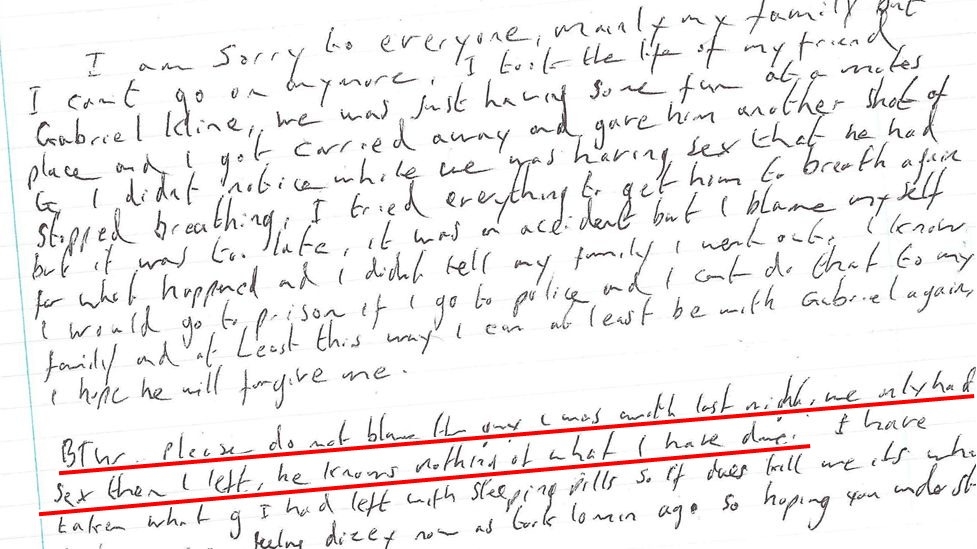 I am sorry to everyone, mainly my family but
I cant go on anymore, I took the life of my friend
Gabriel Kline, we was just having some fun at a mates
place and I got carried away and gave him another shot of
G, I didnt notice while we was having sex that he had
stopped breathing. I tried everything to get him to breath again
but it was to late, it was an accident but I blame myself
for what happened and I didnt tell my family I went out. I know
I would go to prison if I go to police and I cant do that to my
family and at least this way I can at least be with Gabriel again,
I hope he will forgive me.
BTW Please do not blame the guy I was with last night, we only had
sex then I left, he knows nothing of what I have done. I have
taken what g I had left with sleeping pills so if it does kill me its
feeling dizy now as took 10 min ago so hoping you